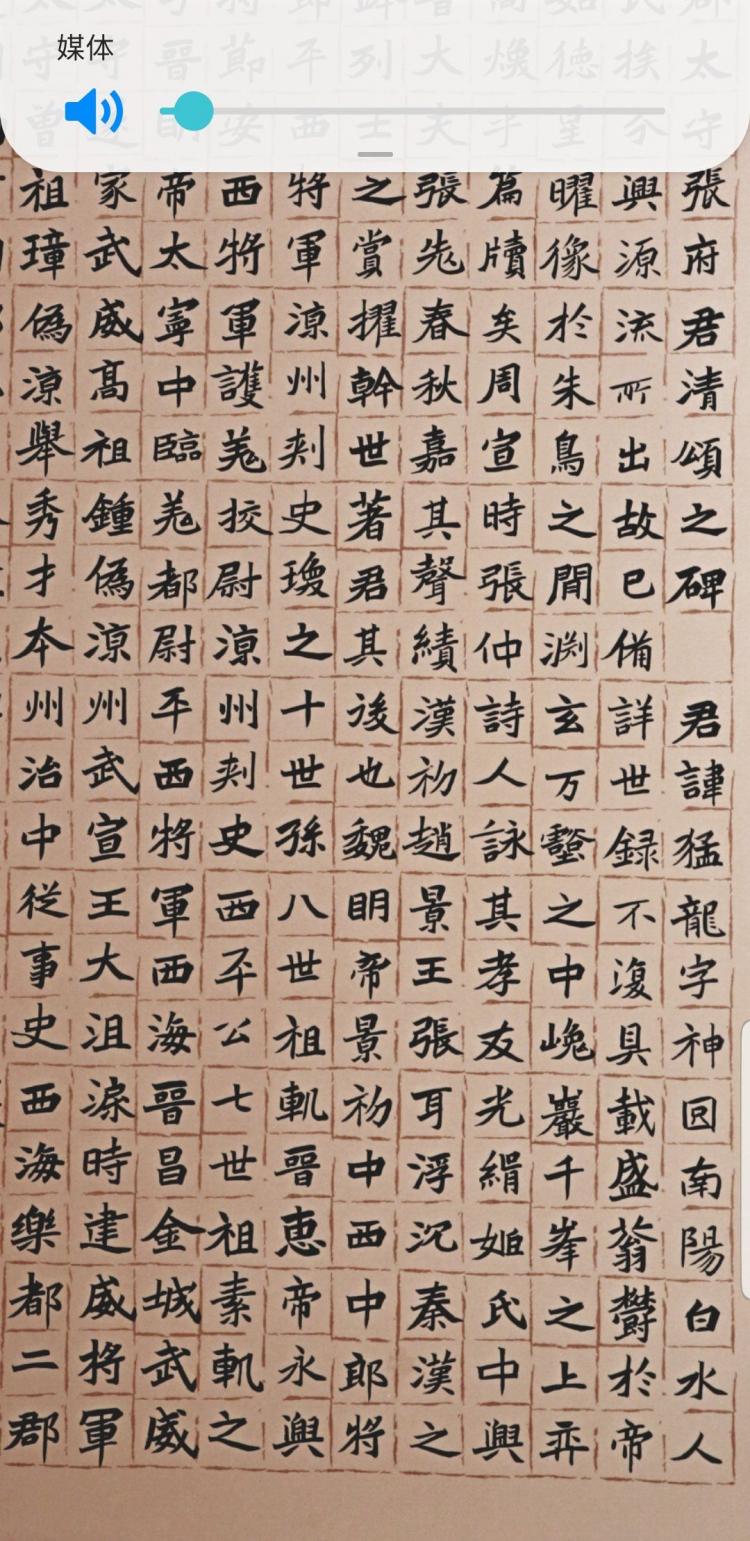 媒体
太守張府君清頌之碑 君諱猛龍字神囧南陽白水人
挨分興源流所出故已備詳世録不復具載盛蓊欝於帝
德星曜像於朱鳥之間渕玄万壑之中巉巖千峯之上弈
煥乎篇牘矣周宣時張仲詩人詠其孝友光緝姬氏中興
大夫張老春秋嘉其聲績漢初趙景王張耳浮沉秦漢之
列士之賞擢幹世著君其後也魏明帝景初中西中郎將
平西將軍涼州刺史瓊之十世孫八世祖軌晉恵帝永興
節安西將軍護羌挍尉涼州刺史西平公七世祖素軌之
晉明帝太寧中臨羌都尉平西將軍西海晉昌金城武威
守遂家武威高祖鍾偽涼州武宣王大沮渠時建威將軍
守曾祖璋偽涼舉秀才本州治中從事史西海樂都二郡